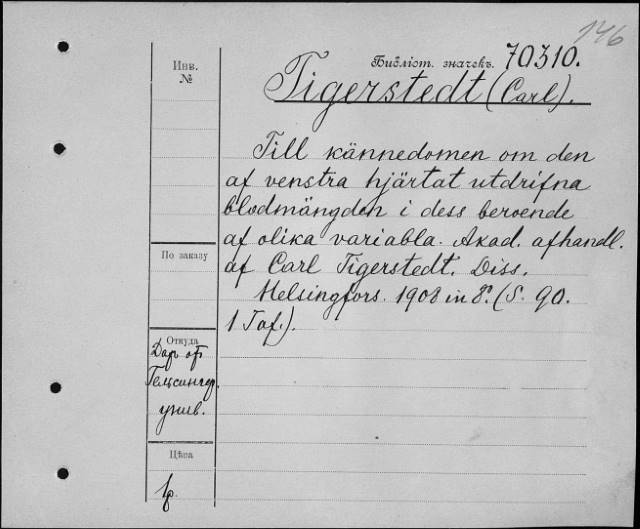 146
Инв.
№
Библіот. значекъ. 70310.
Tigerstedt (Carl).
Till kännedomen om den
af venstra hjärtat utdrifna
blodmängden i dess beroende
af olika variabla. Akad. afhandl.
af Carl Tigerstedt. Diss.
Helsingfors. 1908 in 8°. (S. 90.
1 Taf.).
По заказу
Откуда
Даръ от
Гельсингф.
унив.
Цѣна